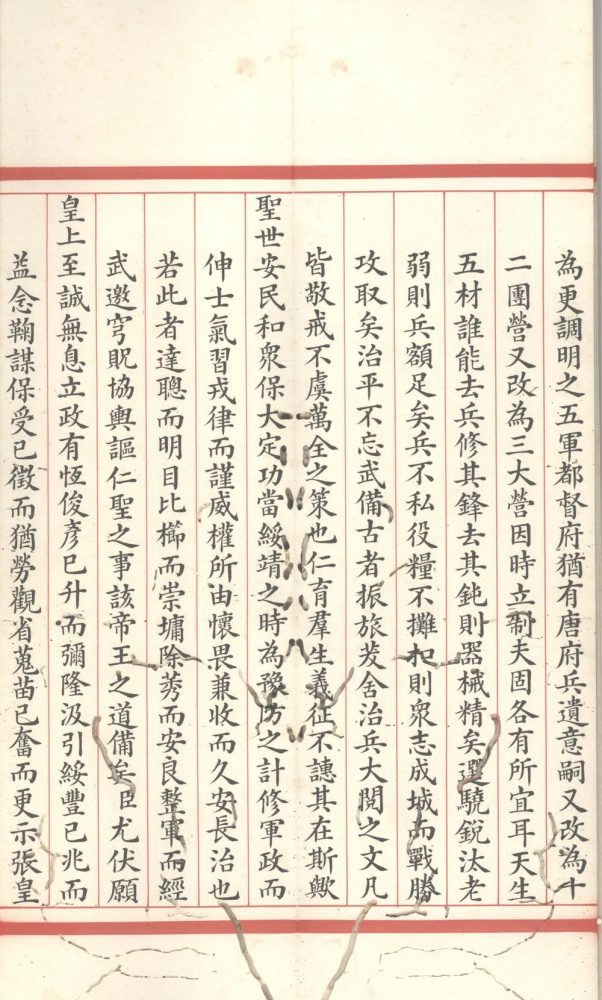 為更調明之五軍都督府猶有唐府兵遺意嗣又改為十
二團營又改為三大營因時立制夫固各有所宜耳天生
五材誰能去兵修其鋒去其鈍則器械精矣選驍銳汰老
弱則兵額足矣兵不私役糧不攤扣則衆志成城而戰勝
攻取矣治平不忘武備古者振旅茇舍治兵大閱之文凡
皆敬戒不虞萬全之策也仁育羣生義征不譓其在斯歟
聖世安民和衆保大定功當綏靖之時為豫防之計修軍政而
伸士氣習戎律而謹威權所由懷畏兼收而久安長治也
若此者達聰而明目比櫛而崇墉除莠而安良整軍而經
武邀穹貺協輿謳仁聖之事該帝王之道備矣臣尤伏願
皇上至誠無息立政有恆俊彥已升而彌隆汲引綏豐已兆而
益念鞠謀保受已徵而猶勞觀省蒐苗已奮而更示張皇